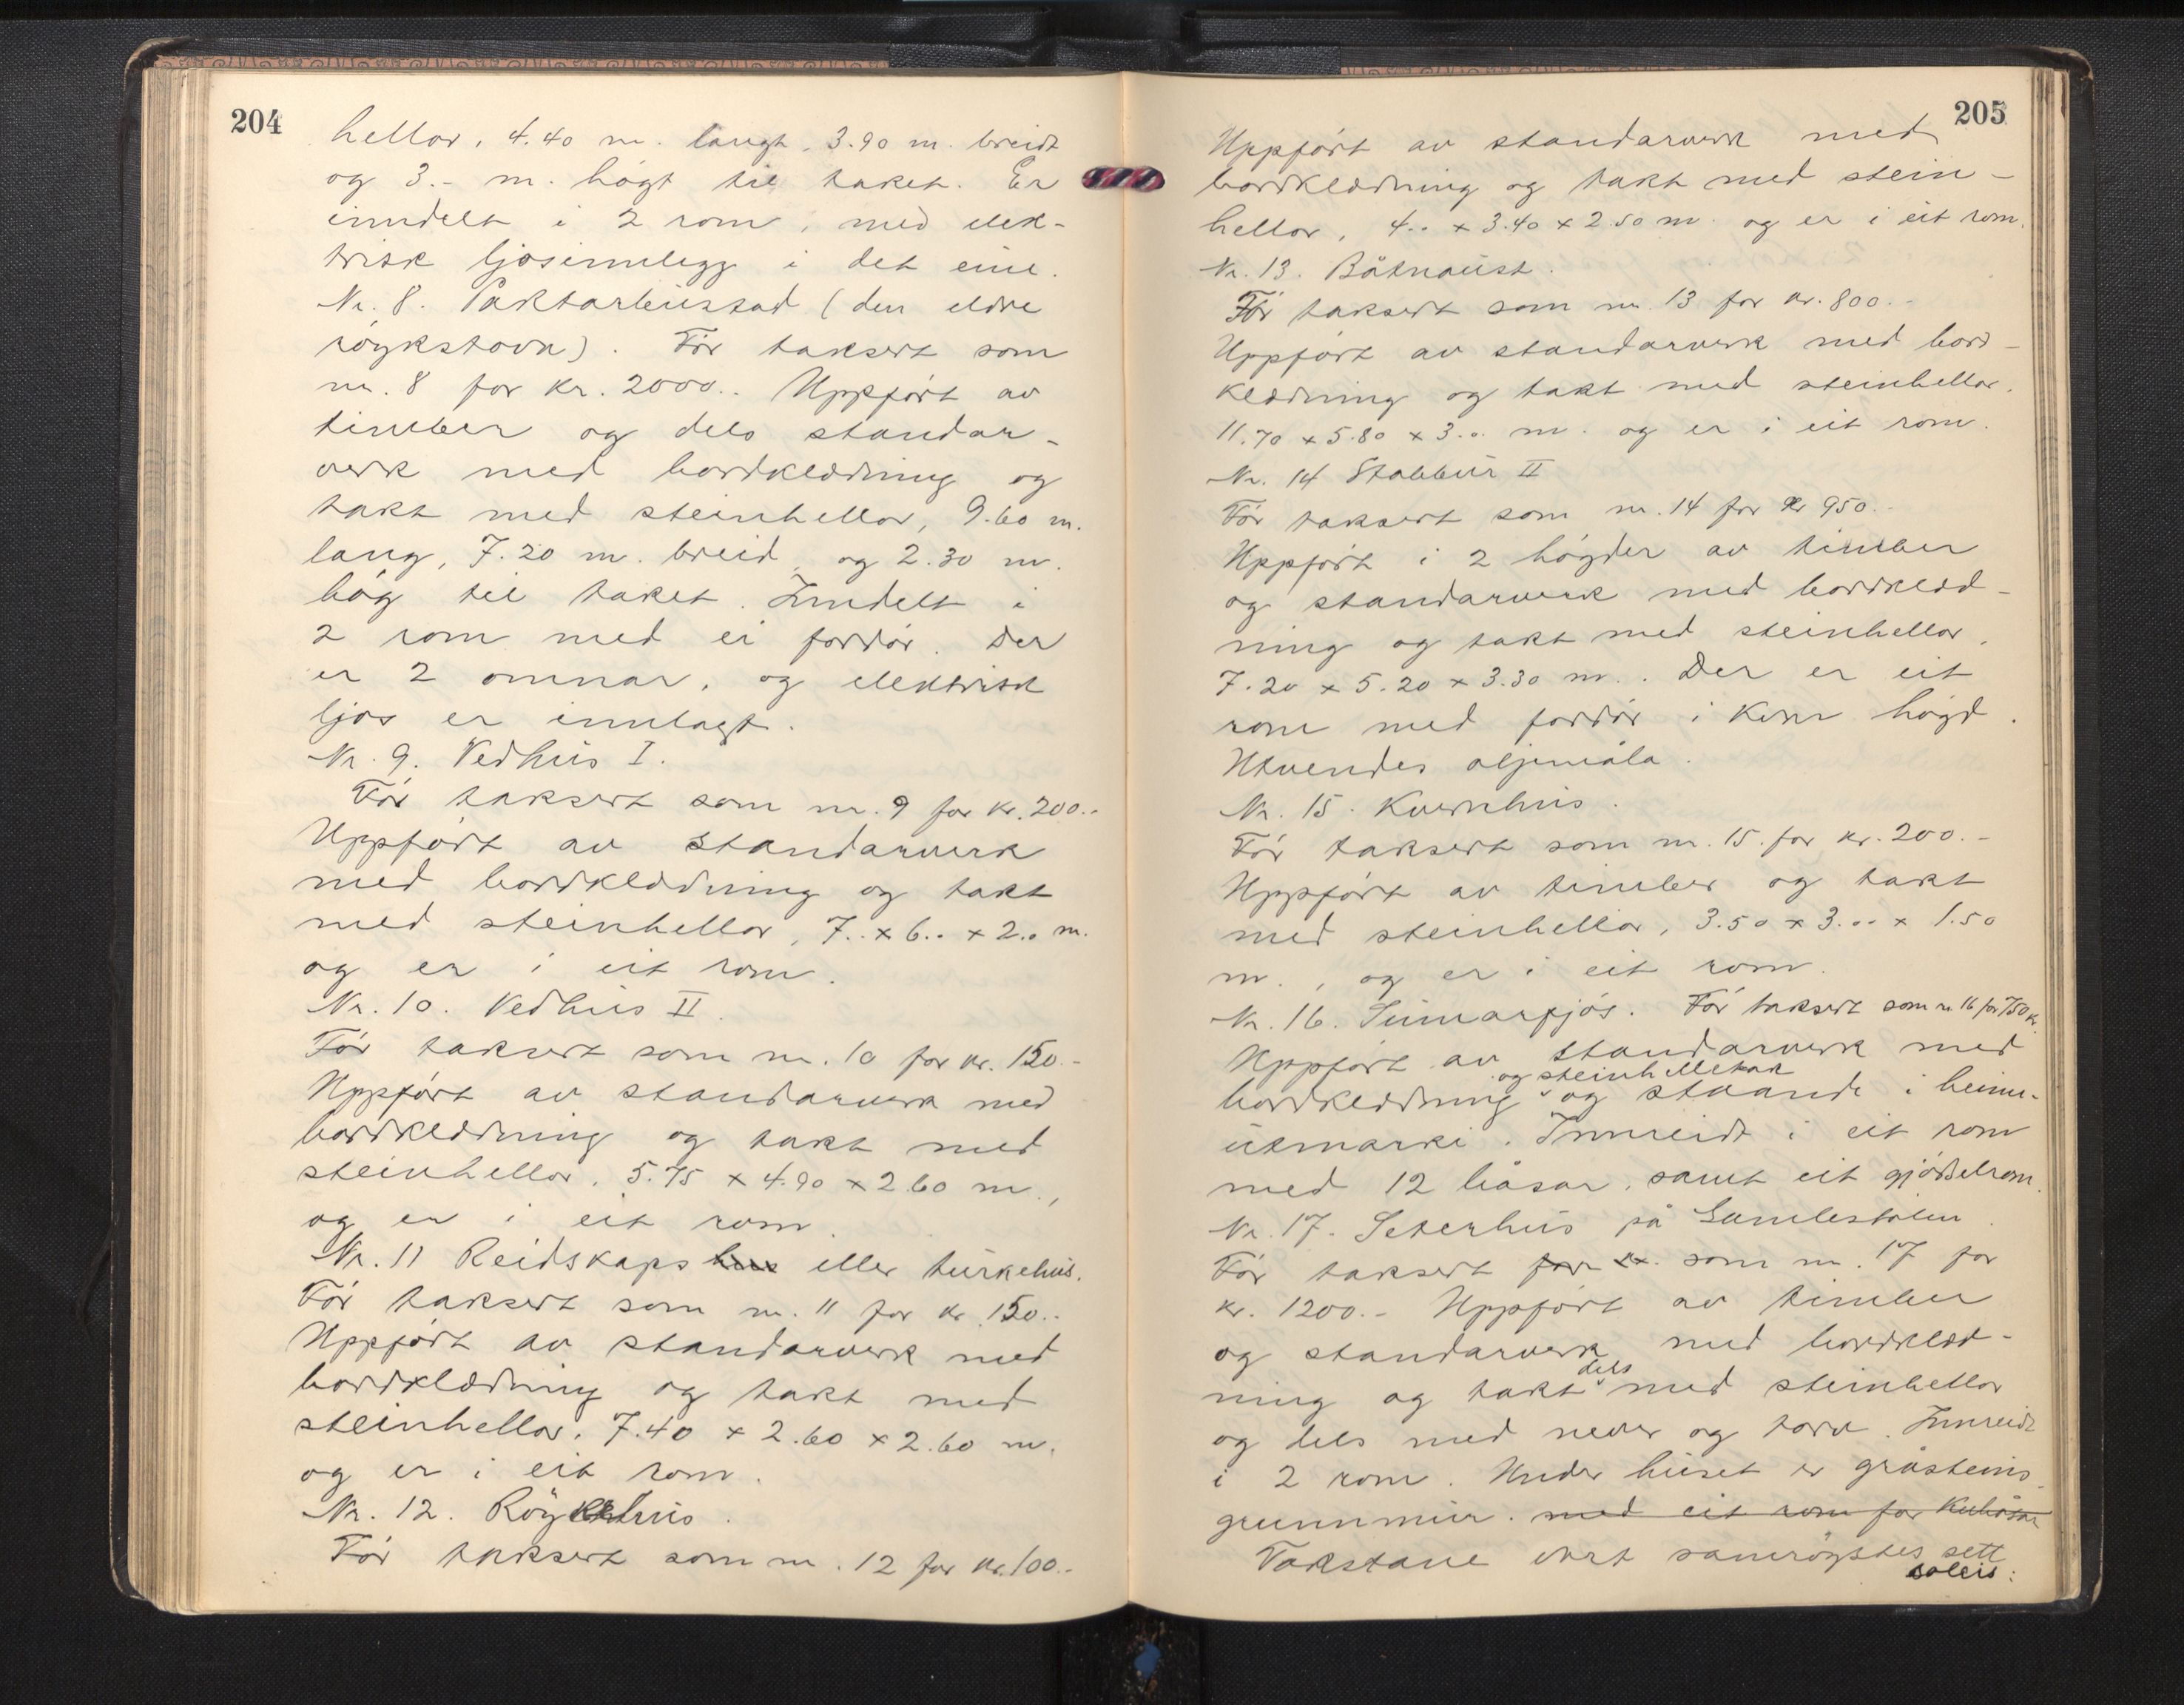 204
hellor, 4.40 m. langt, 3.90 m. breidt
og 3.- m. högt til taket. Er
inndelt i 2 rom, med elek-
trisk ljosinnlegg i det eine.
Nr. 8. Paktarbustad (den eldre
röykstova). För taksert som
nr. 8 for kr. 2000.. Uppfört av
timber og dels standar-
verk med bordklædning og
takt med steinhellor, 9.60 m.
lang, 7.20 m. breid, og 2.30 m.
hög til taket. Inndelt i
2 rom med ei fordör. Der
er 2 omnar, og elektrisk
ljos er innlagt.
Nr. 9. Vedhus I.
För taksert som nr. 9 for kr. 200..
Uppfört av standarverk
med bordklædning og takt
med steinhellor, 7.. x 6.. x 2.. m.
og er i eit rom.
Nr. 10. Vedhus II.
För taksert som nr. 10 for kr. 150.-
Uppfört av standarverk med
bordklædning og takt med
steinhellor, 5.75 x 4.90 x 2.60 m.,
og er i eit rom.
Nr. 11 Reidskaps hus eller turkehus.
För taksert som nr. 11 for kr. 150..
Uppfört av standarverk med
bordklædning og takt med
steinhellor. 7.40 x 2.60 x 2.60 m.
og er i eit rom.
Nr. 12. Röykhus.
För taksert som nr. 12 for kr. 100.-
205
Uppfört av standarverk med
bordklædning og takt med stein-
hellor, 4.. x 3.40 x 2.50 m. og er i eit rom.
Nr. 13. Båtnaust.
För taksert som nr. 13 for kr. 800.-
Uppfört av standarverk med bord-
klædning og takt med steinhellor.
11.70 x 5.80 x 3.. m. og er i eit rom.
Nr. 14 Stabbur II
För taksert som nr. 14 for kr 950.-
Uppfört i 2 högder av timber
og standarverk med bordklæd-
ning og takt med steinhellor,
7.20 x 5.20 x 3.30 m.. Der er eit
rom med fordör i kvar högd.
Utvendes oljemåla.
Nr. 15. Kvernhus.
För taksert som nr. 15. for kr. 200.-
Uppfört av timber og takt
med steinhellor, 3.50 x 3... x 1.50
m., og er i eit rom.
Nr. 16. Sumarfjös. För taksert som nr. 16 for 750 kr.
Uppfört av standarverk med
og steinhelletak
bordklædning og stående i heime-
utmarki. Innreidt i eit rom
med 12 båsar, samt eit gjödselrom.
Nr. 17. Seterhus på Gamlestölen.
För taksert for kr. som nr. 17 for
kr. 1200.- Uppfört av timber
og standarverk med bordklæd-
dels
ning og takt med steinhellor
og dels med never og torv. Innreidt
i 2 rom. Under huset er gråsteins
grunnmur. med eit rom for kubåsar
Takstane vart samröystes sett
soleis: